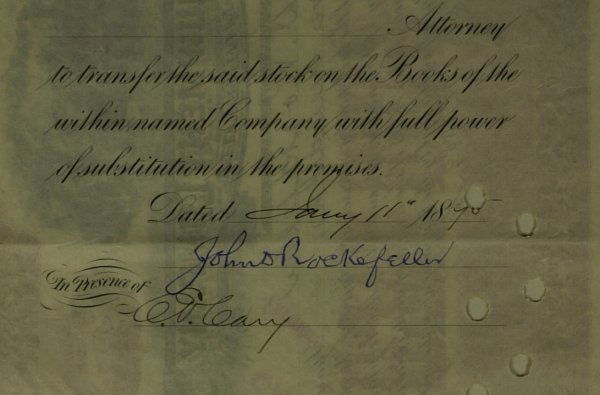 Attorney
to transfer the said stock on the Books of the
within named Company with full power
of substitution in the premises.
Dated Jany 11" 1895
John D Rockefeller
In Presence of
C. D. Cary